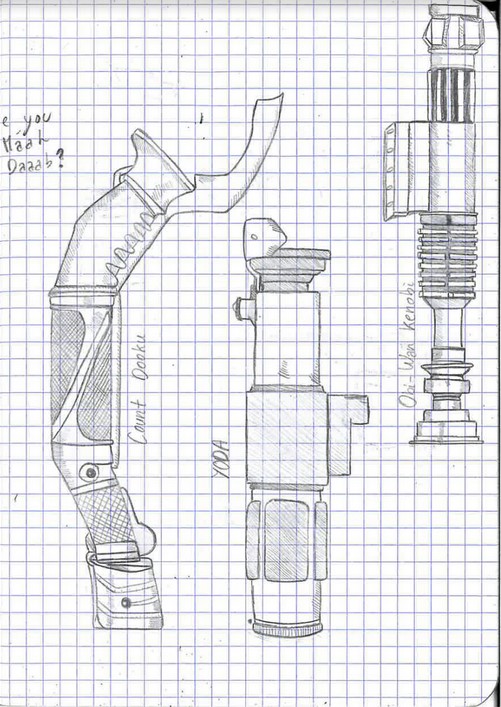 e you
Máàh
Daaab?
Count Dooku
YODA
Obi-Wan Kenobi